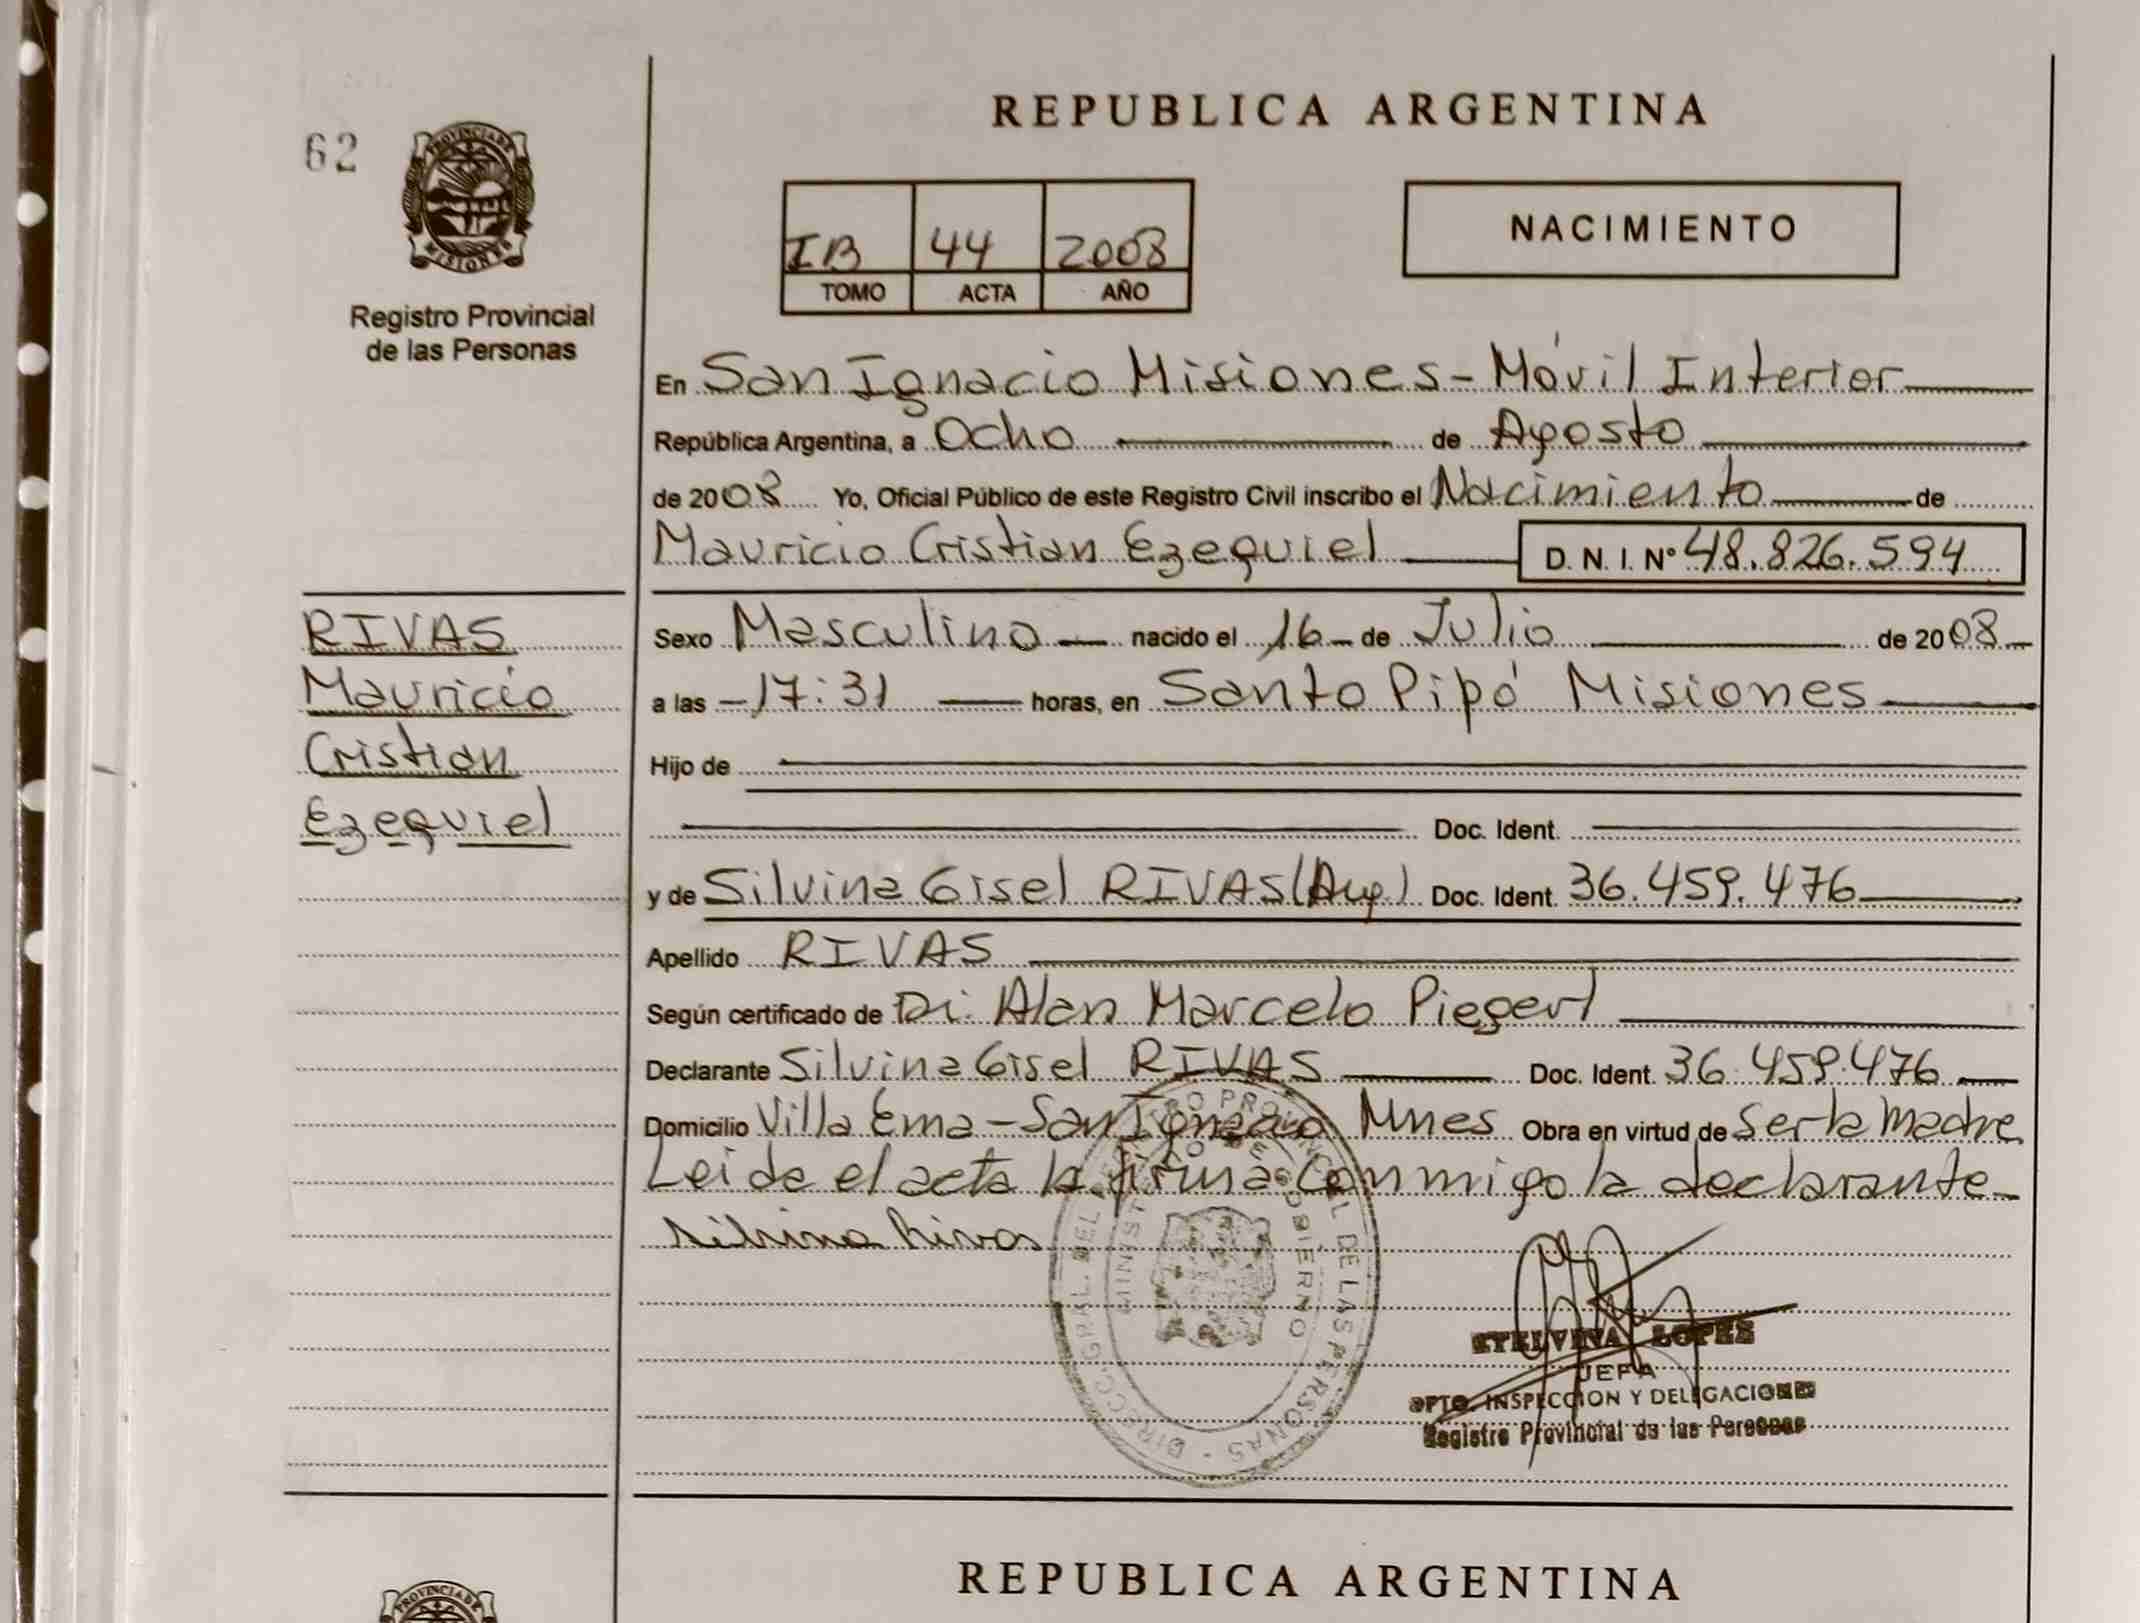 62
PROVINCIA DE
MISIONES
Registro Provincial
de las Personas
REPUBLICA ARGENTINA
NACIMIENTO
IB 44 2008
TOMO ACTA AÑO
En San Ignacio Misiones - Móvil Interior
República Argentina, a Ocho de Agosto
de 2008 Yo, Oficial Público de este Registro Civil inscribo el Nacimiento de
Mauricio Cristian Ezequiel D. N. I. Nº 48.826.594
RIVAS
Mauricio
Cristian
Ezequiel
Sexo Masculino nacido el 16 de Julio de 2008
a las 17:31 horas, en Santo Pipó Misiones
Hijo de
Doc. Ident.
y de Silvina Gisel RIVAS (Arg.) Doc. Ident. 36.459.476
Apellido RIVAS
Según certificado de Dr. Alan Marcelo
Declarante Silvina Gisel RIVAS Doc. Ident. 36.459.476
Domicilio Villa Ema - San Ignacio Mnes Obra en virtud de Ser la madre
Leida el acta la firma conmigo la declarante
Silvina Rivas
DIRECC. GRAL. DEL REGISTRO PROVINCIAL DE LAS PERSONAS
MINISTERIO DE GOBIERNO
ETELVINA LOPES
JEFA
DPTO. INSPECCION Y DELEGACIONES
Registro Provincial de las Personas
REPUBLICA ARGENTINA
PROVINCIA DE